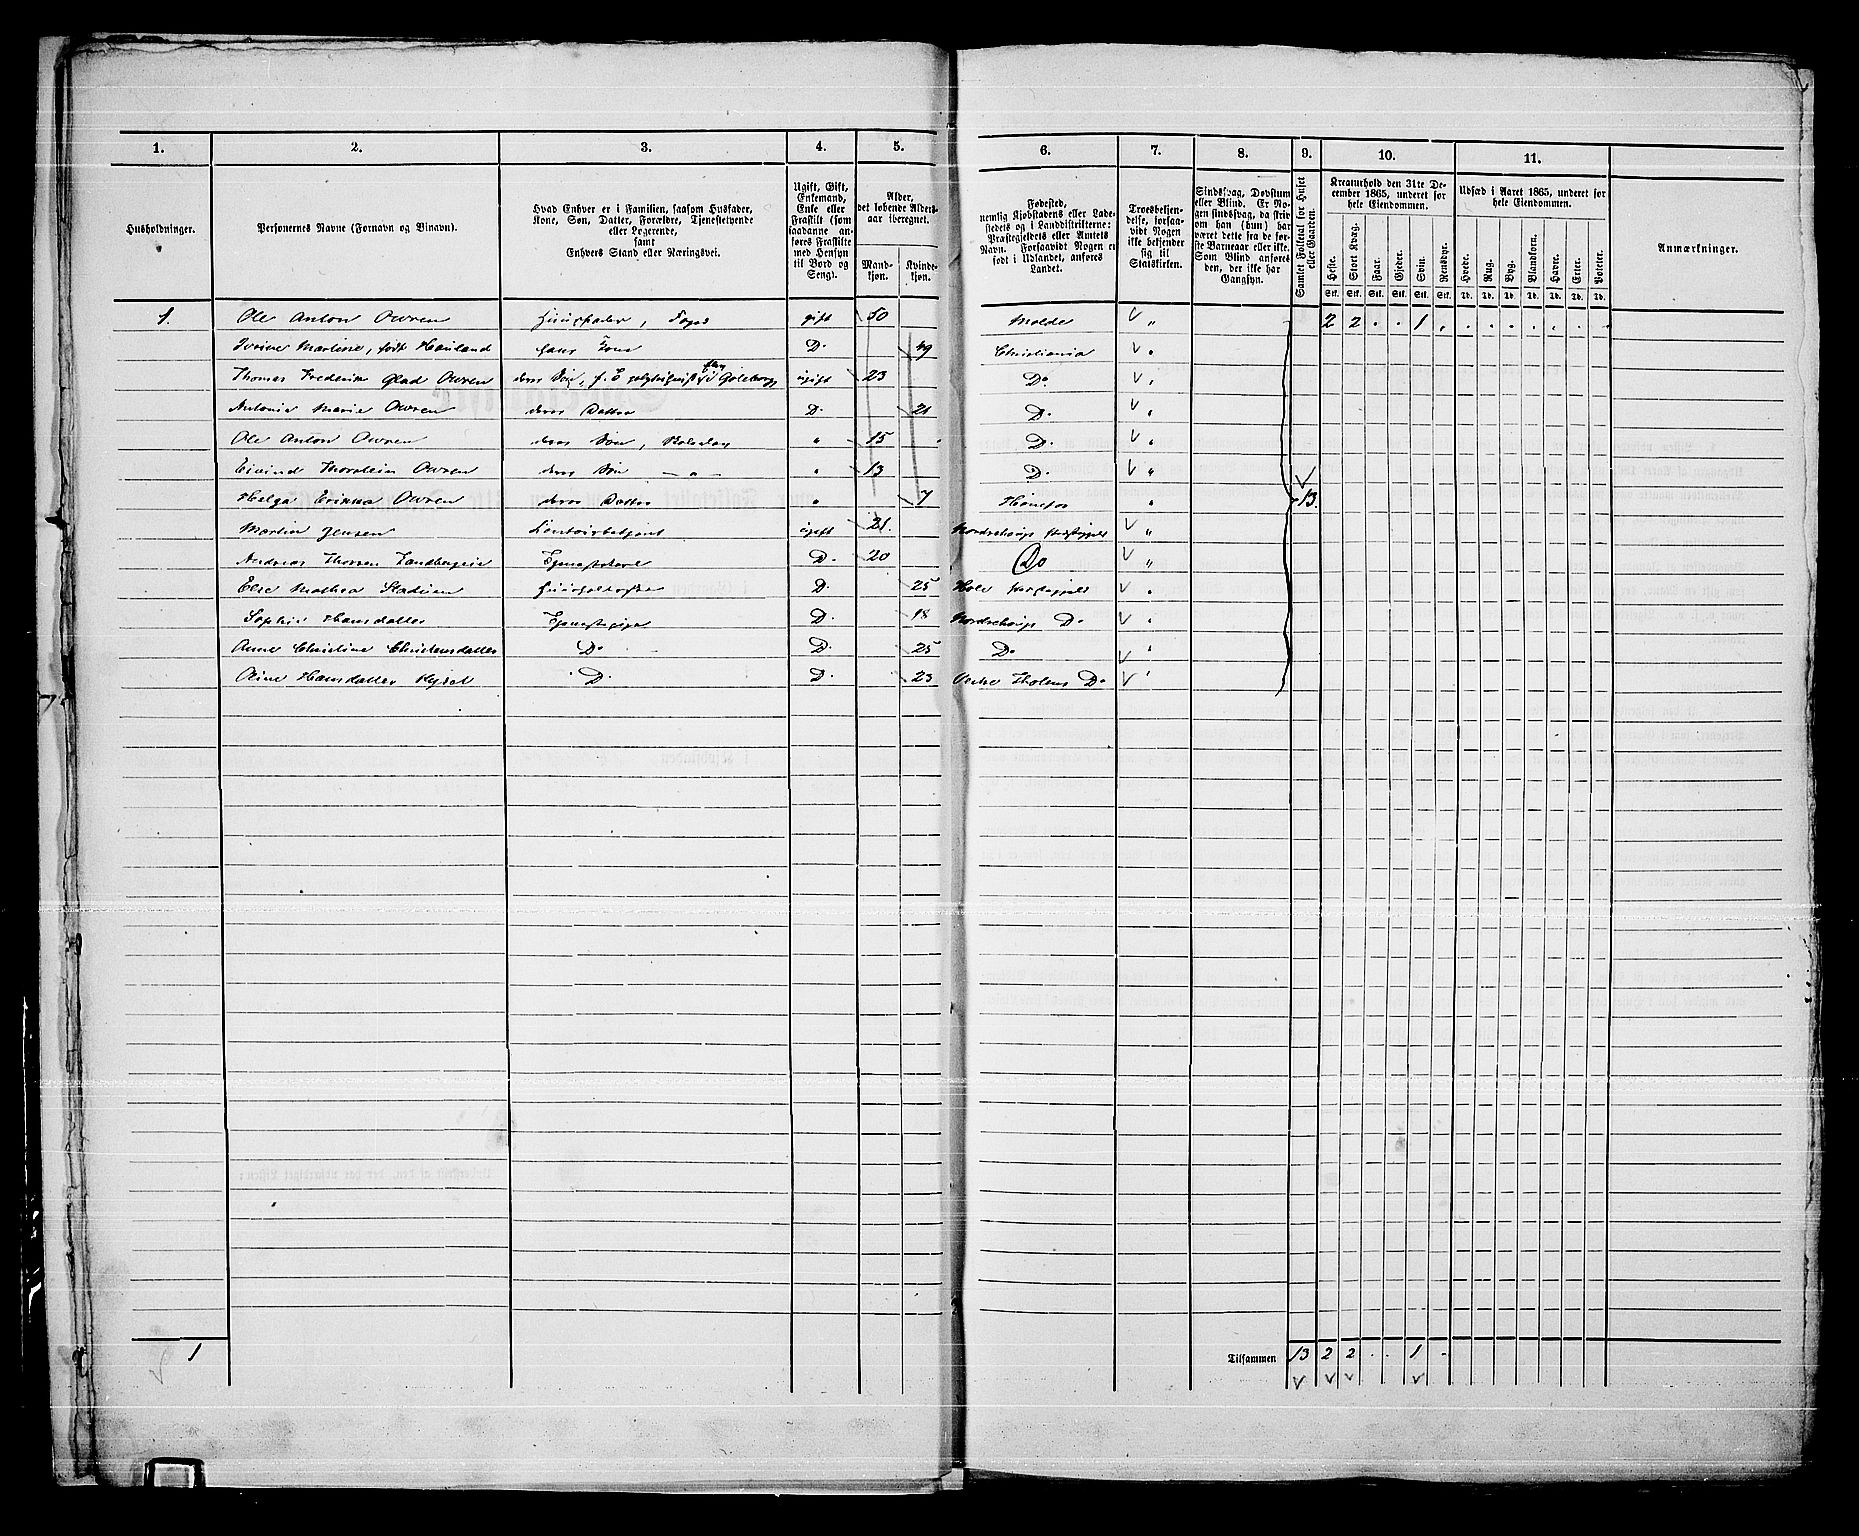 1. 2. 3. 4. 5. 6. 7. 8. 9. 10. 11.
Husholdninger.
Personernes Navne (Fornavn og Binavn).
Hvad Enhver er i Familien, saasom Husfader,
Kone, Søn, Datter, Forældre, Tjenestetyende
eller Logerende,
samt
Enhvers Stand eller Næringsvei.
Ugift, Gift,
Enkemand,
Enke eller
Fraskilt (som
saadanne an-
føres Fraskilte
med Hensyn
til Bord og
Seng).
Alder,
det løbende Alders-
aar iberegnet.
Mand-
kjøn.
Kvinde-
kjøn.
Fødested,
nemlig Kjøbstadens eller Lade-
stedets og i Landdistrikterne:
Præstegjeldets eller Amtets
Navn. Forsaavidt Nogen er
født i Udlandet, anføres
Landet.
Troesbekjen-
delse, forsaa-
vidt Nogen
ikke bekjender
sig til
Statskirken.
Sindssvag, Døvstum
eller Blind. Er No-
gen sindssvag, da skriv
om han (hun) har
været dette fra de før-
ste Barneaar eller ikke.
Som Blind anføres
den, der ikke har
Gangsyn.
Samlet Folketal for Huset
eller Gaarden.
Kreaturhold den 31te De-
cember 1865, underet for
hele Eiendommen.
Heste. Stort Kvæg. Faar. Gjeder. Svin. Rensdyr.
Stk. Stk. Stk. Stk. Stk. Stk.
Udsæd i Aaret 1865, underet for
hele Eiendommen.
Hvede. Rug. Byg. Blandkorn. Havre. Erter. Poteter.
Td. Td. Td. Td. Td. Td. Td.
Anmærkninger.
1. Ole Anton Owren Huusfader, Foged gift 50 Molde 2 2 . . 1 .
Martine, født Hauland hans Kone D. 49 Christiania
Thomas Frederik Glad Owren deres Søn, ugift 23 Do
Antonie Marie Owren deres Datter D. 21 D.
Ole Anton Owren deres Søn, 15 D.
Eivind Thorstein Owren deres Søn 13 D.
Helga Erikka Owren deres Datter 7 Hønefos 13.
Martin Jensen ugift 21. Norderhougs Præstegjeld
Andreas Thorsen Tjenestekarl D. 20 Do
Else Mathea D. 25 Hole Præstegjeld
Sophie Hansdatter Tjenestepige D. 18 Norderhougs D.
Anne Christine Christensdatter Do D. 25 Do
Oline Hansdatter D. D. 23 Vestre Thotens Do
1 Tilsammen 13 2 2 . . 1 .